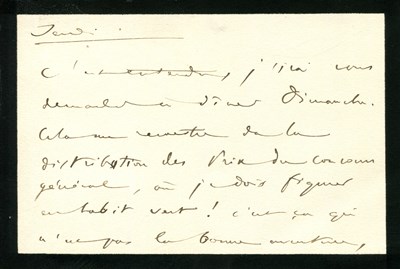 Jeudi.
C'est entendu, j'irai vous
demander à dîner Dimanche.
Cela me remettra de la
distribution des Prix du Concours
général, où je dois figurer
en habit vert ! c'est ça qui
n'est pas la bonne aventure,